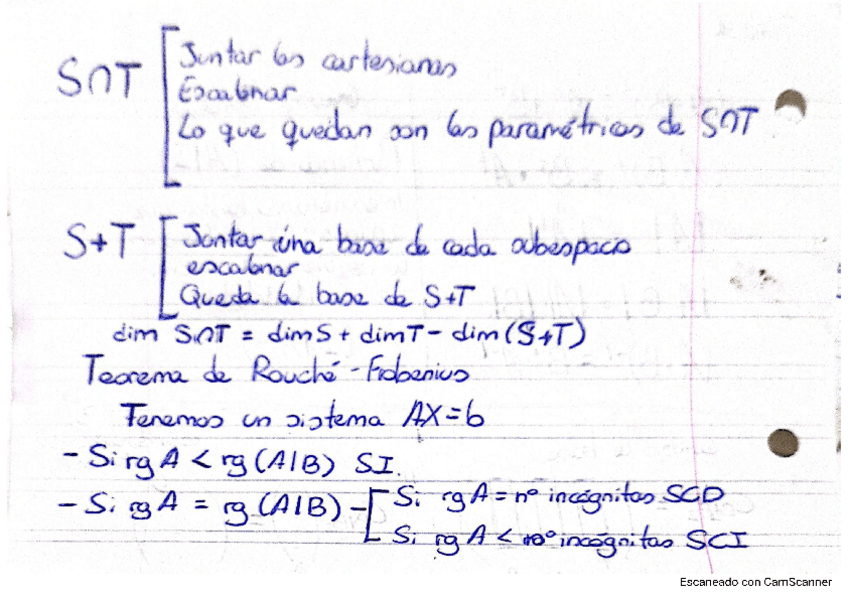 S∩T [ Juntar las cartesianas
Escalonar
Lo que quedan son las paramétricas de S∩T
S+T [ Juntar una base de cada subespacio
escalonar
Queda la base de S+T
dim S∩T = dim S + dim T - dim (S+T)
Teorema de Rouché-Frobenius
Tenemos un sistema AX=b
- Si rg A < rg (A|B) SI.
- Si rg A = rg (A|B) - [ Si rg A = nº incógnitas SCD
Si rg A < nº incógnitas SCI
Escaneado con CamScanner